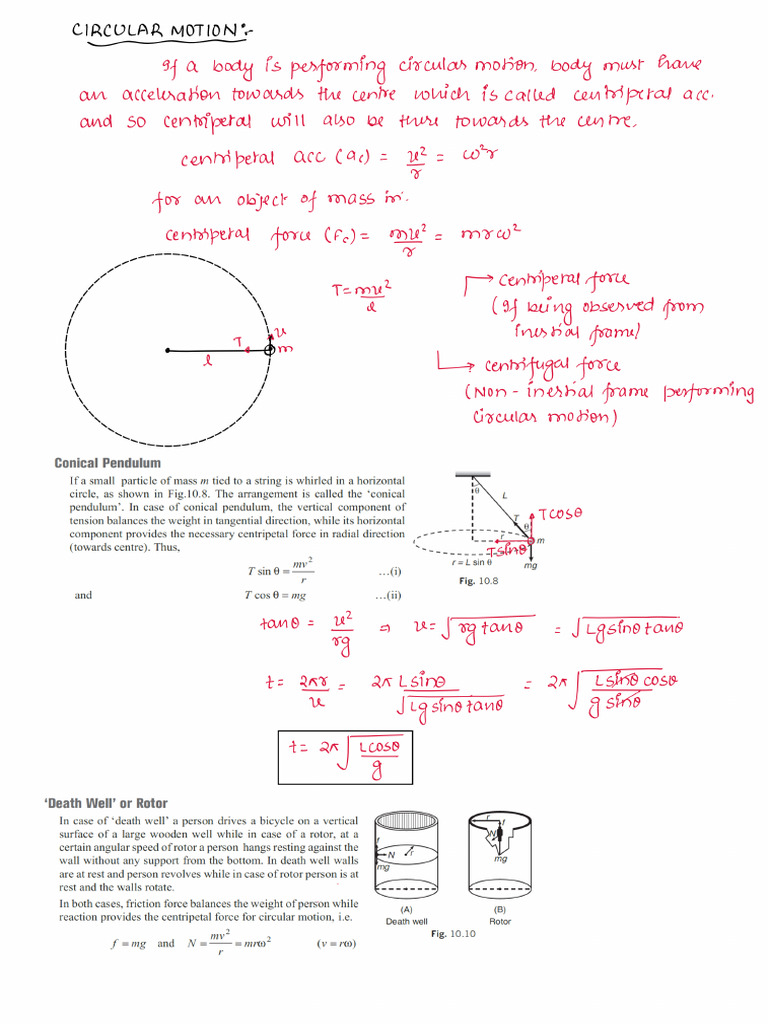 CIRCULAR MOTION:-
If a body is performing circular motion, body must have
an acceleration towards the centre which is called centripetal acc.
and so centripetal will also be there towards the centre.
centripetal acc (ac) = v²/r = ω²r
for an object of mass m:
centripetal force (Fc) = mv²/r = mrω²
T = mv²/l
→ centripetal force
(If being observed from
inertial frame)
→ centrifugal force
(Non-inertial frame performing
circular motion)
T
v
m
l
Conical Pendulum
If a small particle of mass m tied to a string is whirled in a horizontal
circle, as shown in Fig.10.8. The arrangement is called the 'conical
pendulum'. In case of conical pendulum, the vertical component of
tension balances the weight in tangential direction, while its horizontal
component provides the necessary centripetal force in radial direction
(towards centre). Thus,
T sin θ = mv²/r ...(i)
and T cos θ = mg ...(ii)
θ
L
T
Tcosθ
θ
r
m
Tsinθ
r = L sin θ
mg
Fig. 10.8
tanθ = v²/rg ⇒ v = √rg tanθ = √Lg sinθ tanθ
t = 2πr/v = 2π L sinθ/√Lg sinθ tanθ = 2π √L sinθ cosθ/g sinθ
t = 2π √L cosθ/g
'Death Well' or Rotor
In case of 'death well' a person drives a bicycle on a vertical
surface of a large wooden well while in case of a rotor, at a
certain angular speed of rotor a person hangs resting against the
wall without any support from the bottom. In death well walls
are at rest and person revolves while in case of rotor person is at
rest and the walls rotate.
In both cases, friction force balances the weight of person while
reaction provides the centripetal force for circular motion, i.e.
f = mg and N = mv²/r = mrω² (v = rω)
f
N
r
mg
r
f
N
mg
(A)
Death well
(B)
Rotor
Fig. 10.10